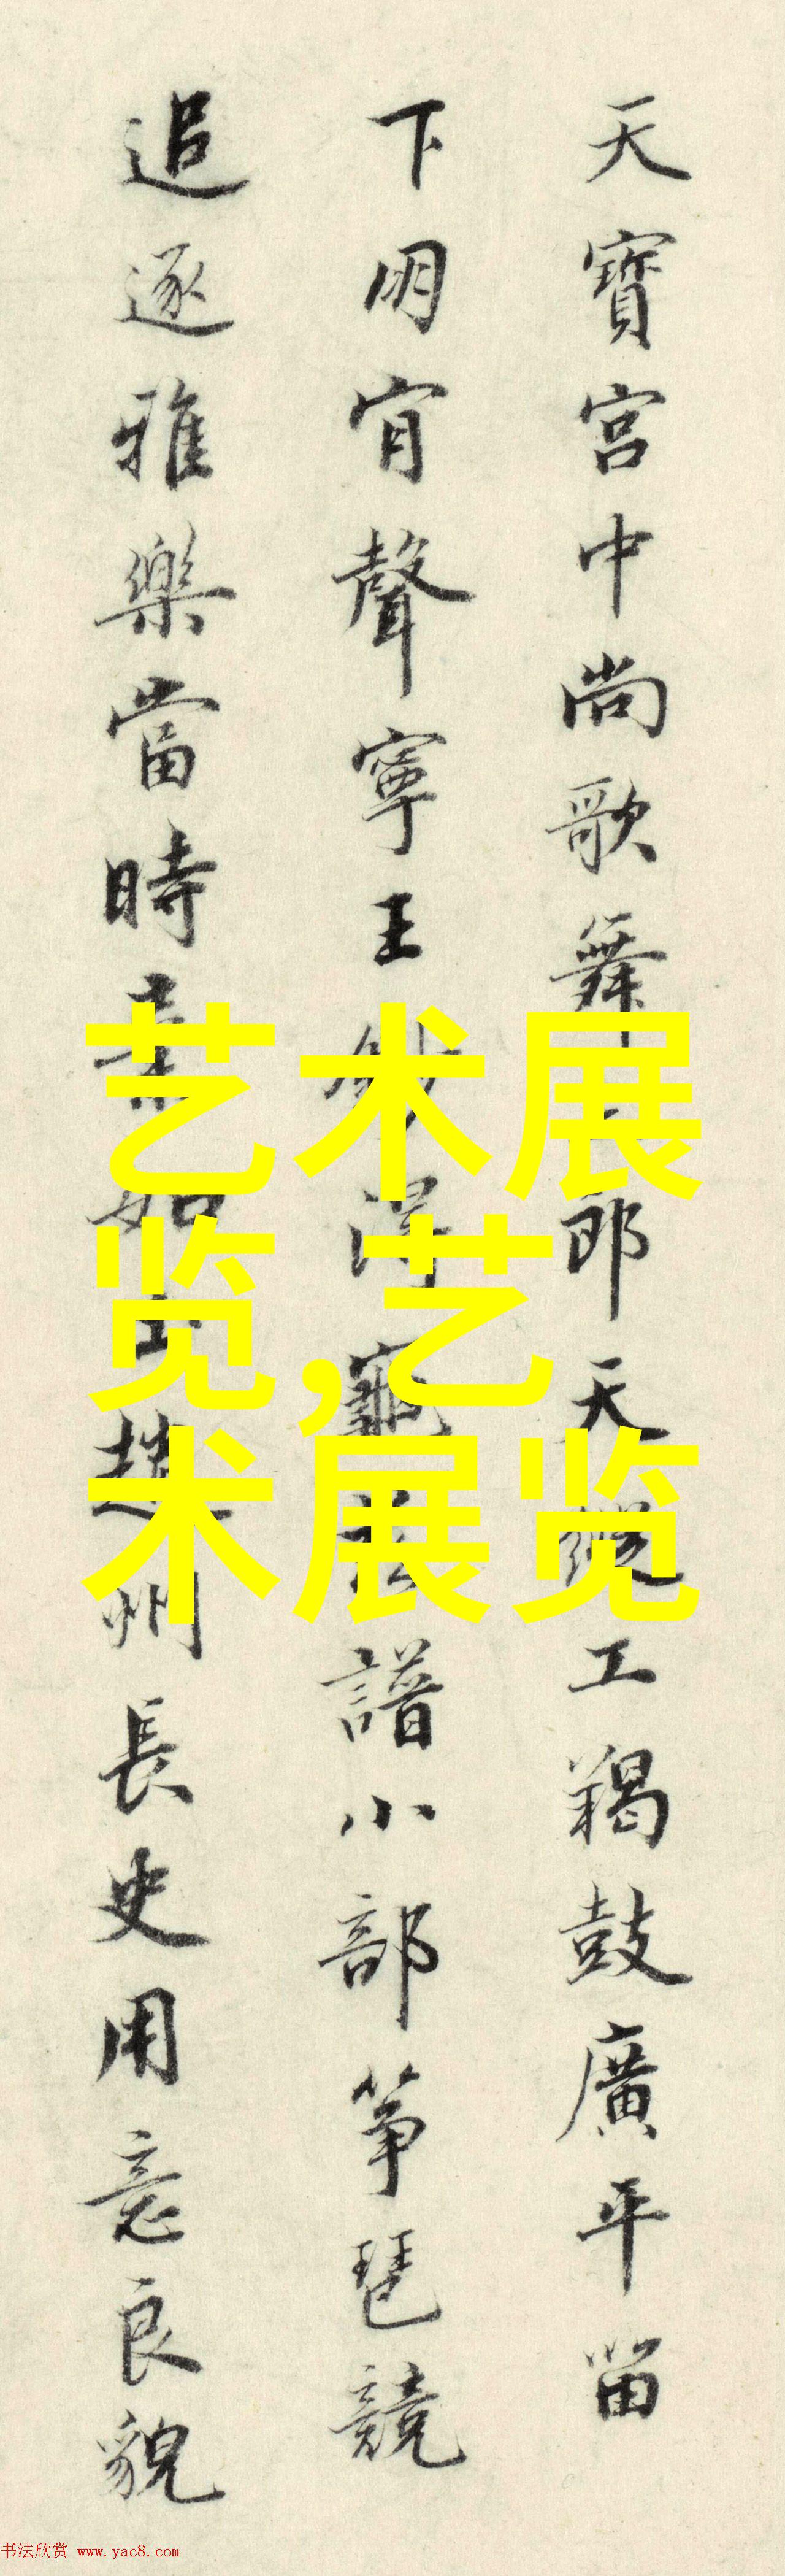 天寶宮中尚歌舞郎天縱工羯鼓廣平留
下朋肎聲寧王得龜譜小部箏琶競
追逐雅樂當時棄如土趙州長史用意良貌
艺术展
览,艺
术展览
书法欣赏 www.yac8.com